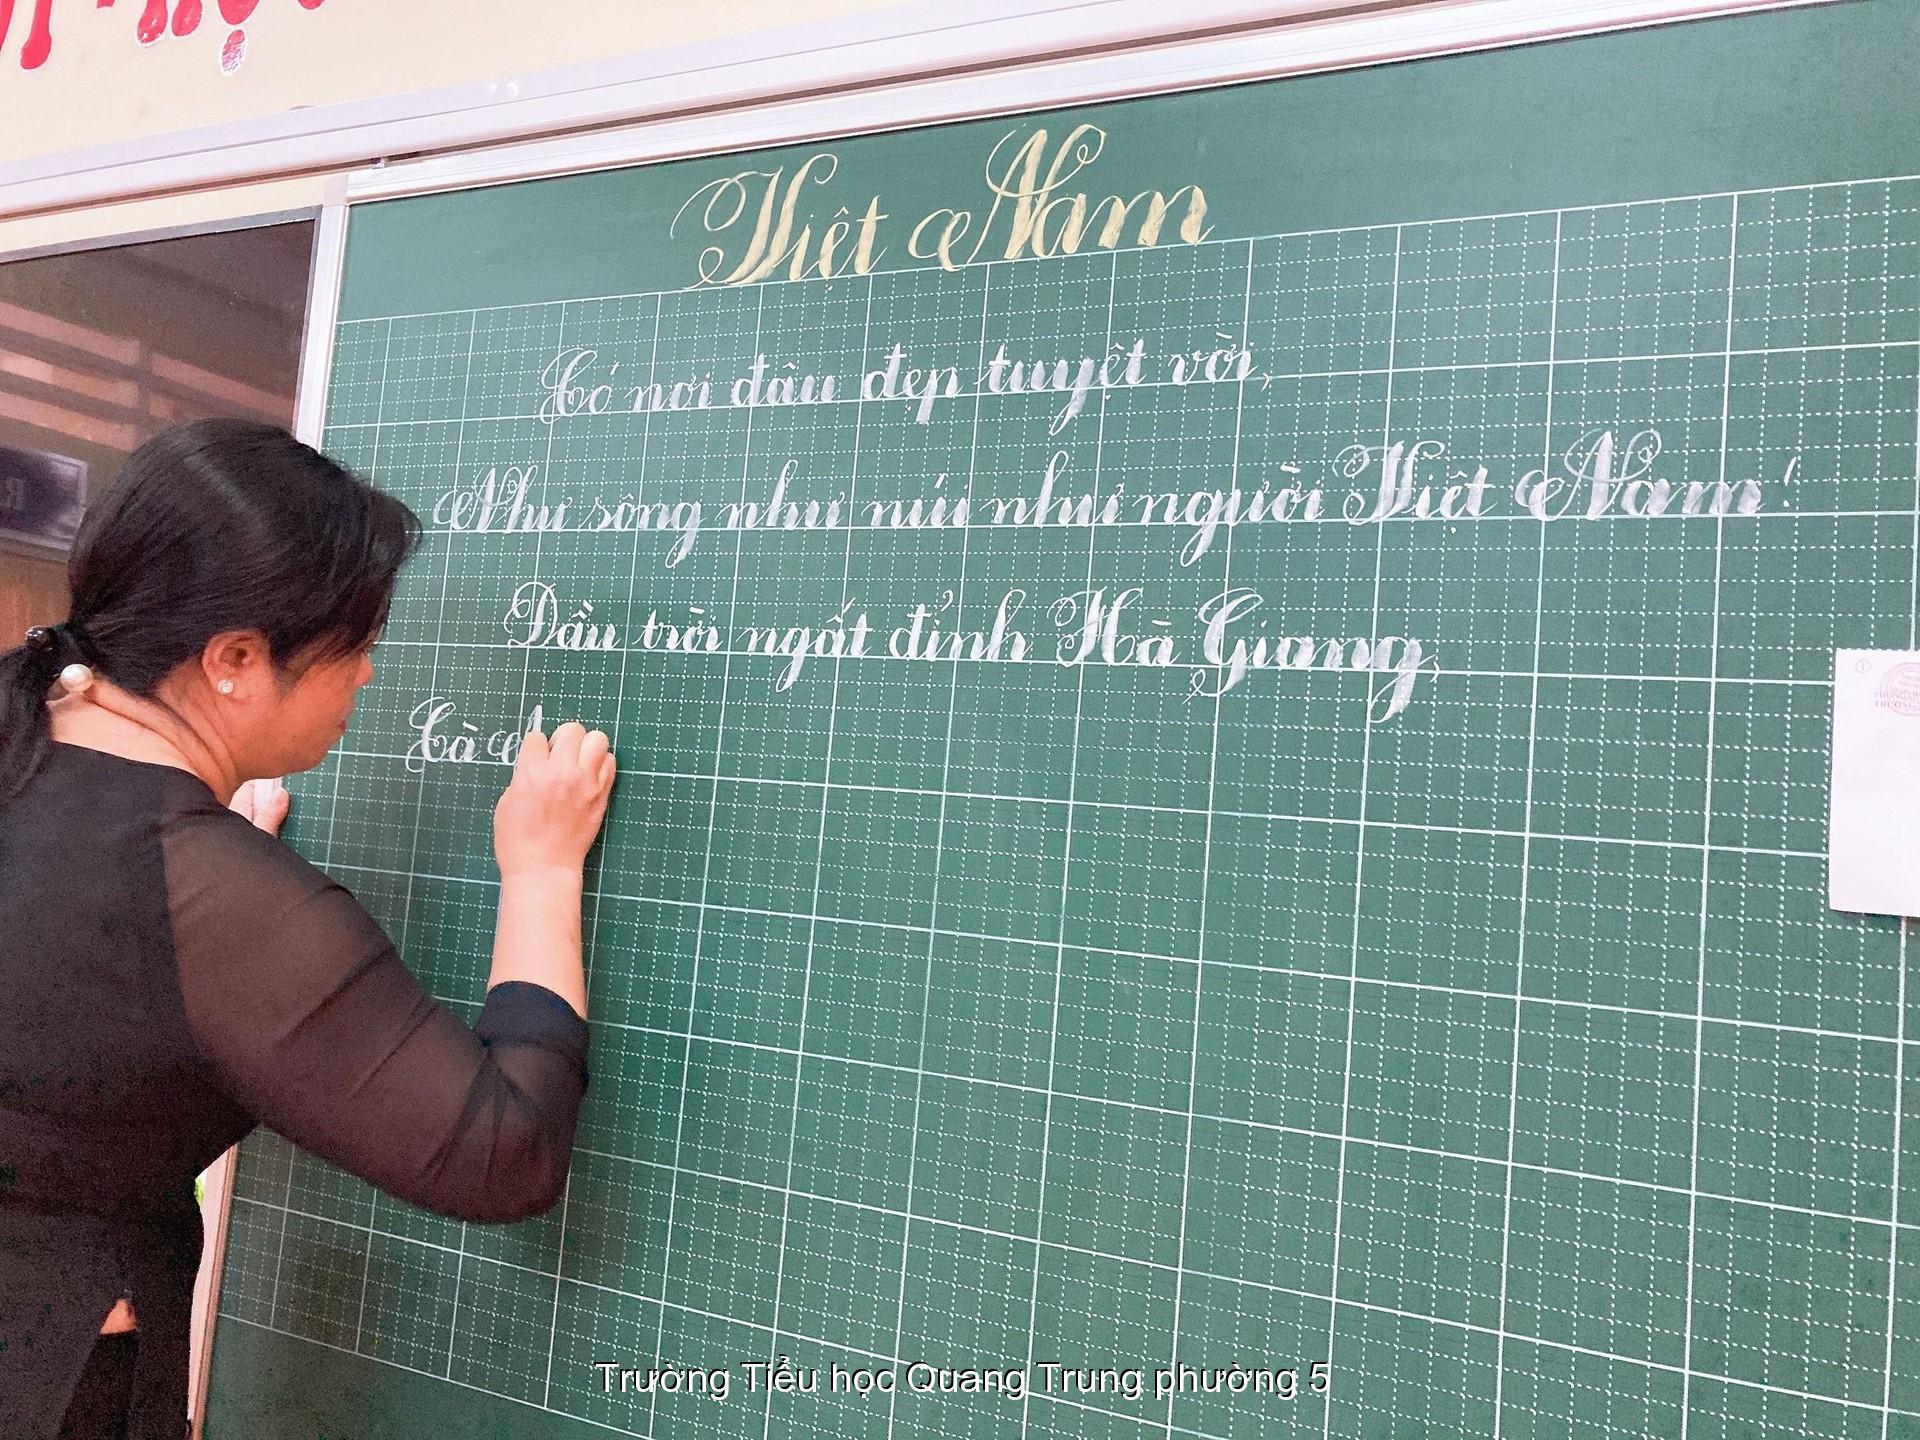 Việt Nam
Có nơi đâu đẹp tuyệt vời,
Như sông như núi như người Việt Nam!
Đầu trời ngất đỉnh Hà Giang,
Cà
Trường Tiểu học Quang Trung phường 5